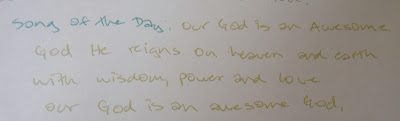 Song of the Day. Our God is an Awesome
God He reigns on heaven and earth
with wisdom, power and love
our God is an awesome God.